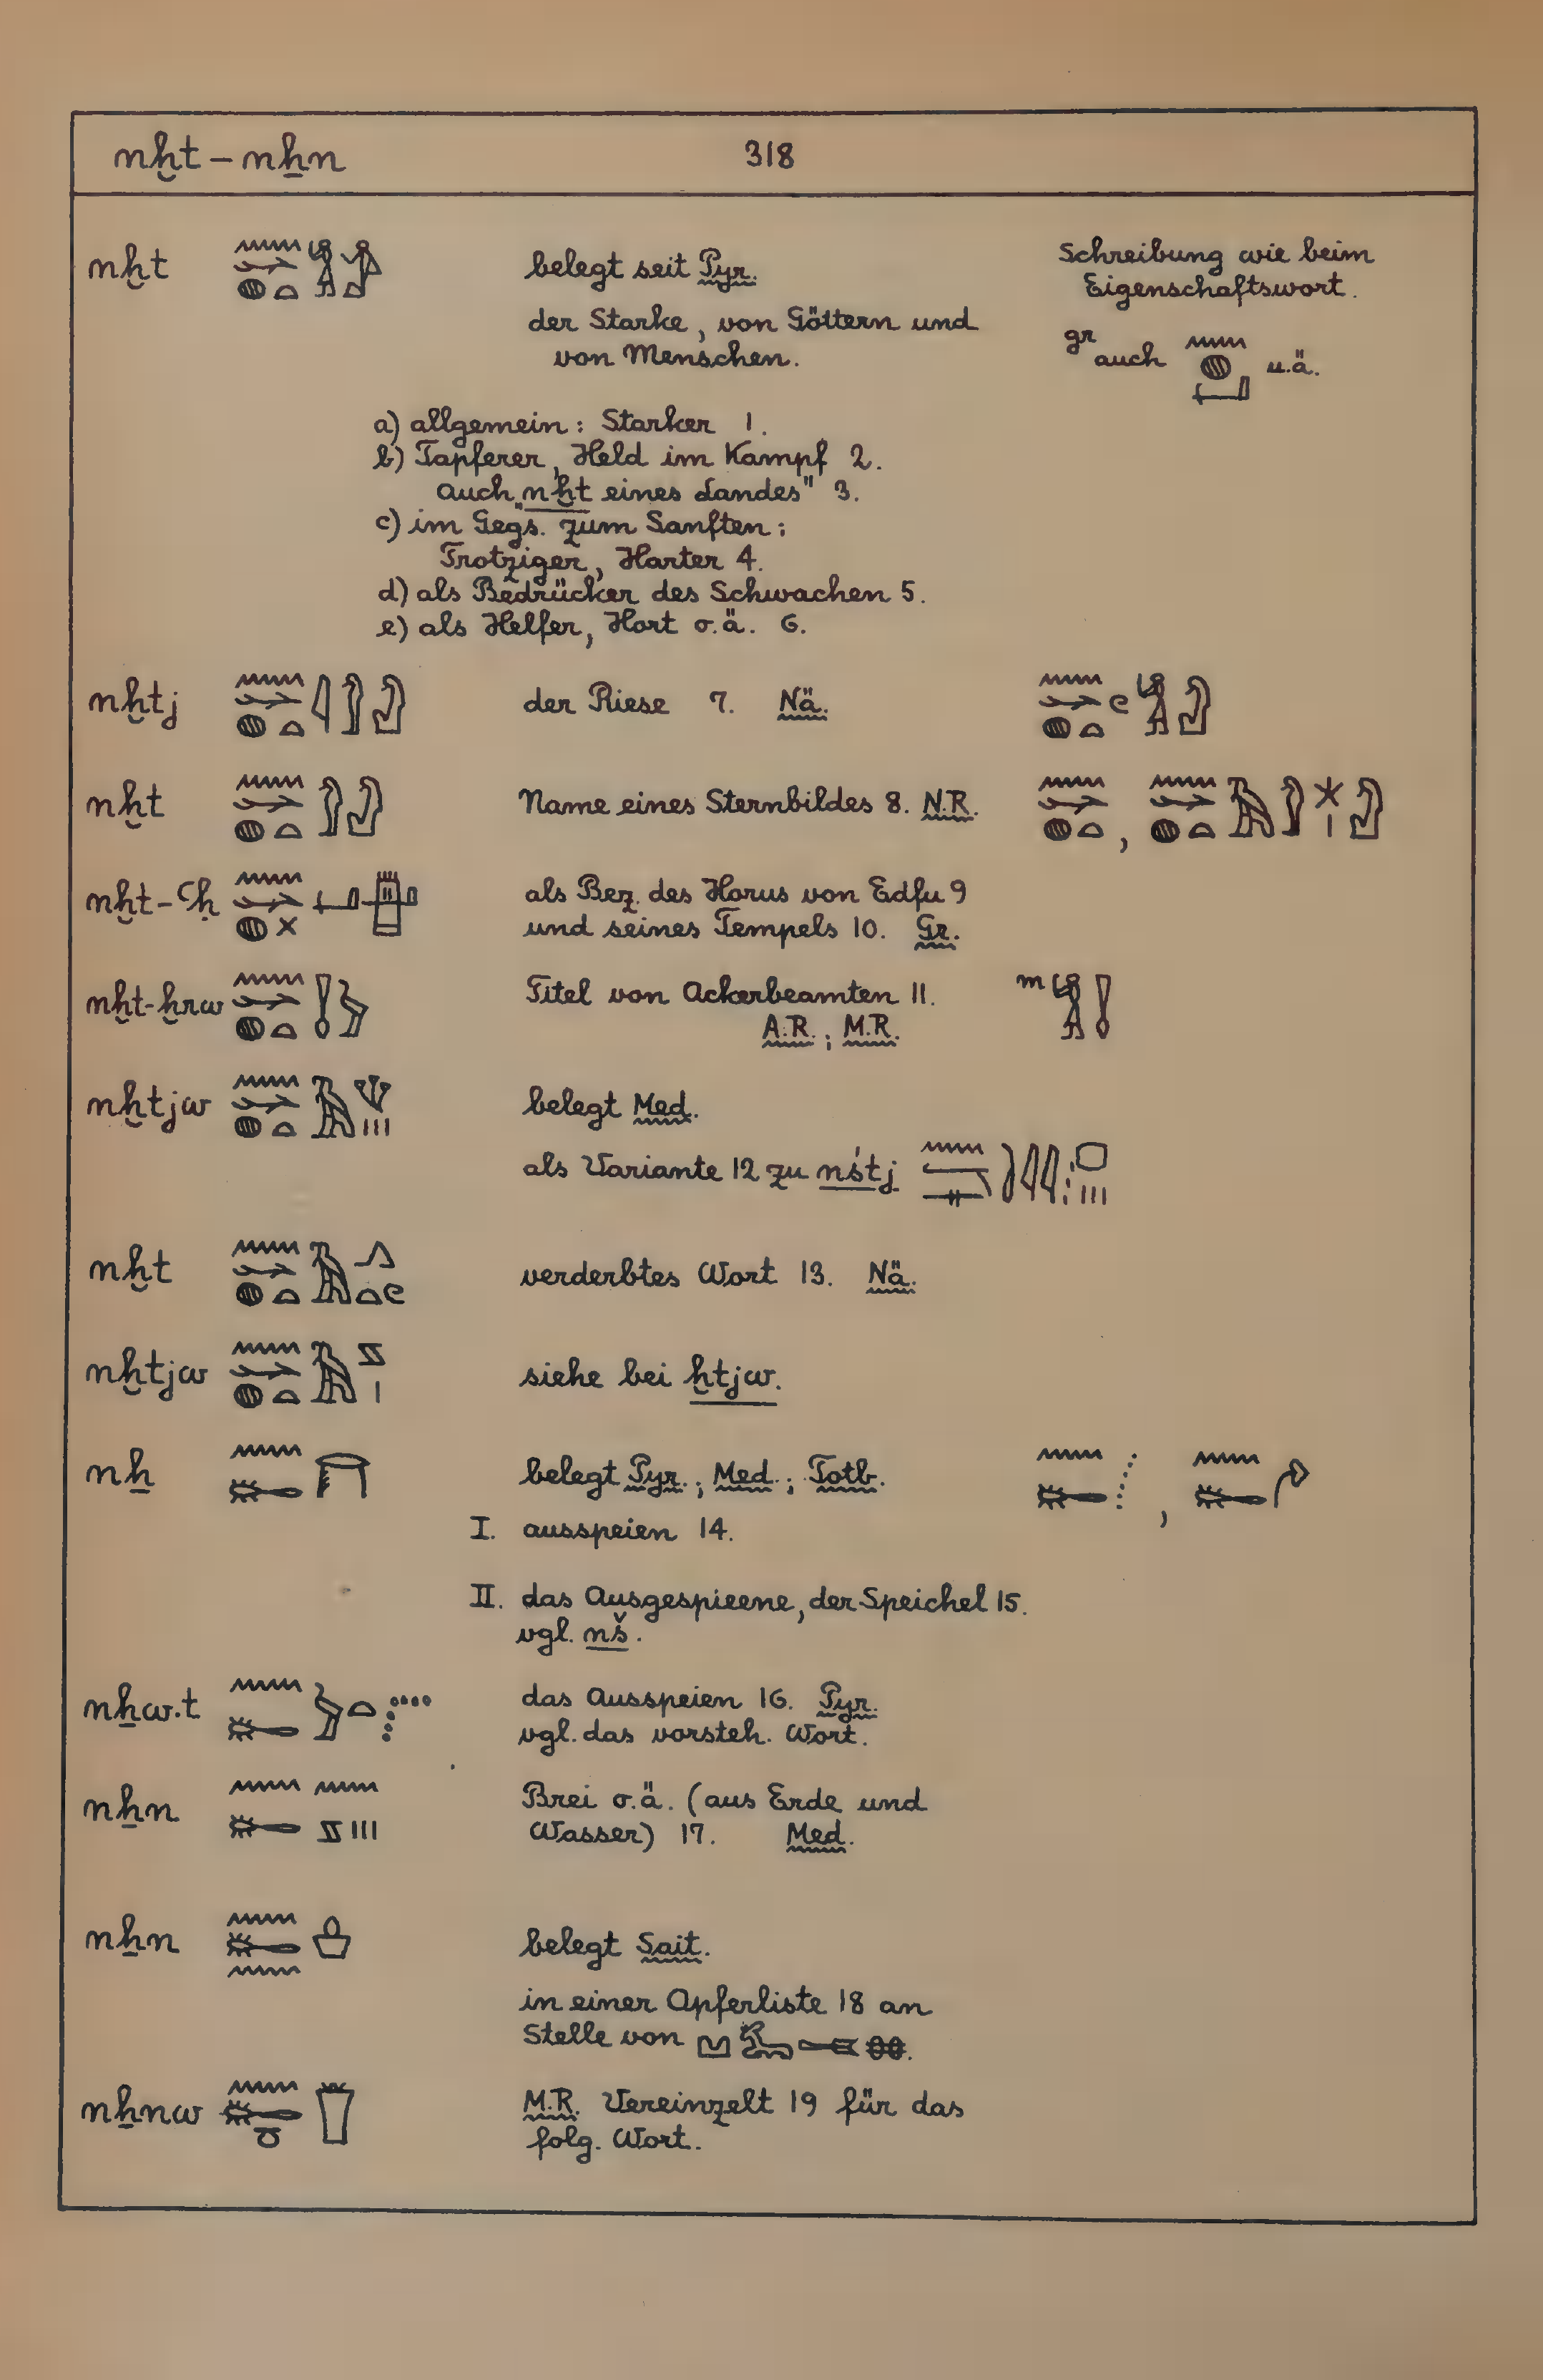 nḫt – nẖn 318
nḫt belegt seit Pyr. Schreibung wie beim
Eigenschaftswort.
der Starke, von Göttern und
von Menschen.
gr auch u.ä.
a) allgemein: Starker 1.
b) Tapferer, Held im Kampf 2.
auch „nḫt eines Landes" 3.
c) im Gegs. zum Sanften:
Trotziger, Harter 4.
d) als Bedrücker des Schwachen 5.
e) als Helfer, Hort o.ä. 6.
nḫtj der Riese 7. Nä.
nḫt Name eines Sternbildes 8. N.R. ,
nḫt-ꜥḥ als Bez. des Horus von Edfu 9
und seines Tempels 10. Gr.
nḫt-ḫrw Titel von Ackerbeamten 11. m
A.R.; M.R.
nḫtjw belegt Med.
als Variante 12 zu nśtj
nḫt verderbtes Wort 13. Nä.
nḫtjw siehe bei ḫtjw.
nẖ belegt Pyr.; Med.; Totb. ,
I. ausspeien 14.
II. das Ausgespieene, der Speichel 15.
vgl. nš.
nẖw.t das Ausspeien 16. Pyr.
vgl. das vorsteh. Wort.
nẖn Brei o.ä. (aus Erde und
Wasser) 17. Med.
nẖn belegt Sait.
in einer Opferliste 18 an
Stelle von .
nẖnw M.R. Vereinzelt 19 für das
folg. Wort.